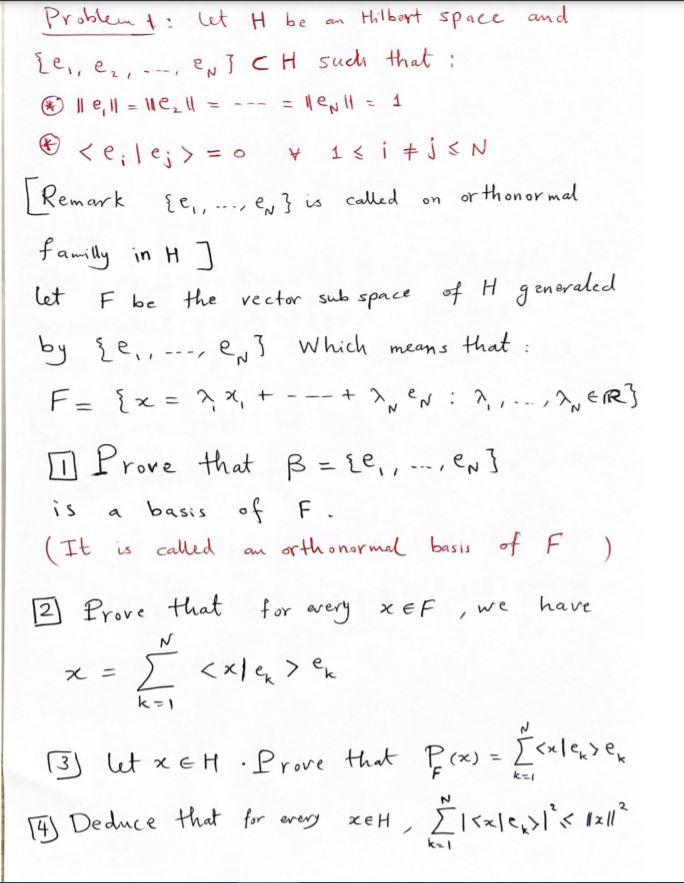 Problem 1 : Let H be an Hilbert space and
{e₁, e₂, ---, e_N} ⊂ H such that :
⊛ ||e₁|| = ||e₂|| = --- = ||e_N|| = 1
⊛ <e_i|e_j> = 0 ∀ 1 ≤ i ≠ j ≤ N
[Remark {e₁, ..., e_N} is called on orthonormal
familly in H ]
Let F be the vector subspace of H generated
by {e₁, ---, e_N} Which means that :
F = {x = λ₁ x₁ + --- + λ_N e_N : λ₁, ..., λ_N ∈ ℝ}
[1] Prove that β = {e₁, ..., e_N}
is a basis of F .
(It is called an orthonormal basis of F )
[2] Prove that for every x ∈ F , we have
x = ∑_{k=1}^{N} <x|e_k> e_k
[3] Let x ∈ H . Prove that P_F(x) = ∑_{k=1}^{N} <x|e_k> e_k
[4] Deduce that for every x ∈ H , ∑_{k=1}^{N} |<x|e_k>|² ≤ ||x||²